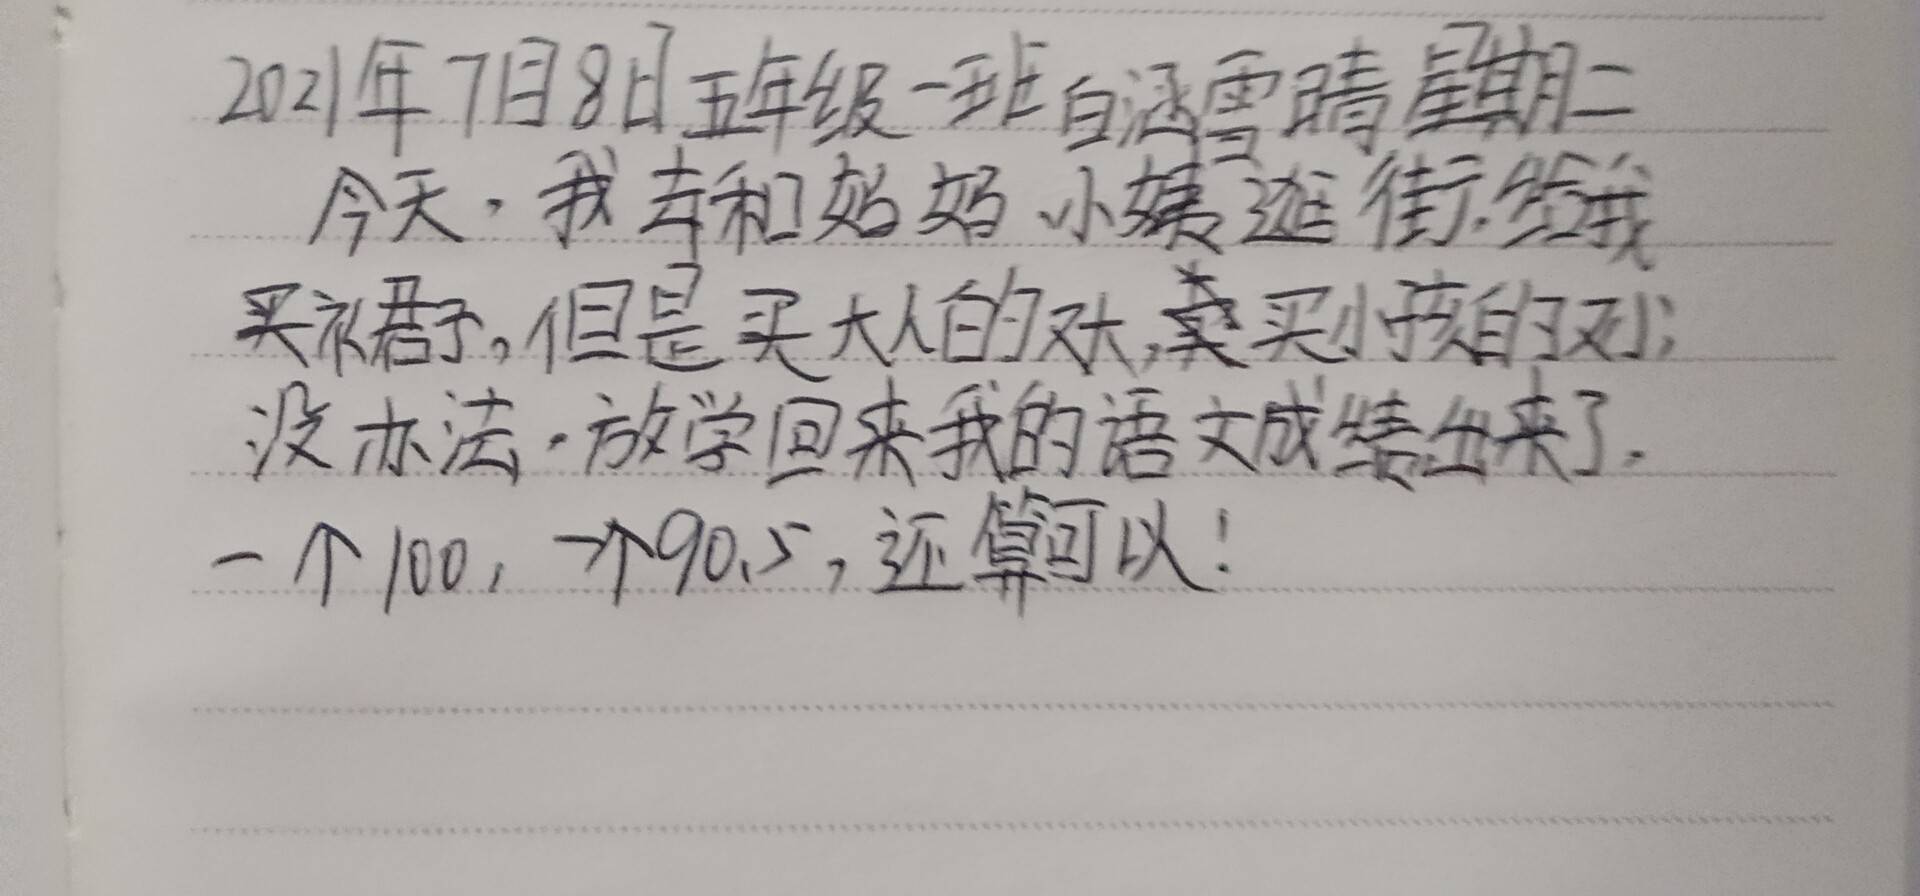 2021年7月8日五年级一班白涵雪晴星期二
今天,我去和妈妈、小姨逛街.给我
买衣君子。但是买大人的太大,买小孩的又小;
没办法.放学回来我的语文成绩出来了.
一个100,一个90.5,还算可以!